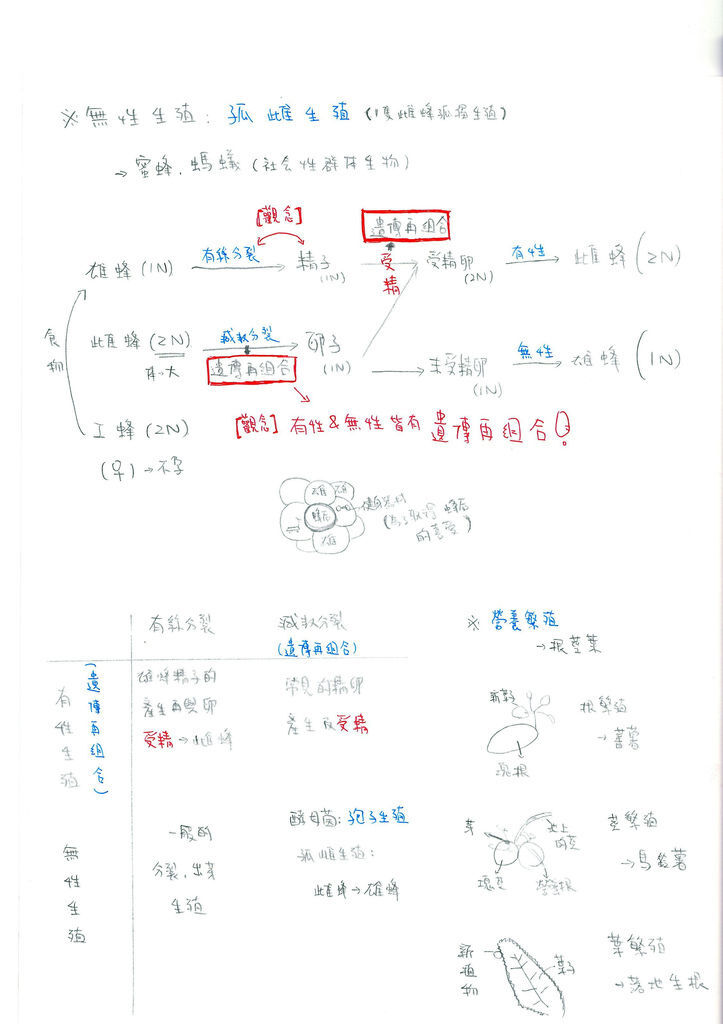 ※ 無性生殖：孤雌生殖（1隻雌蜂孤獨生殖）
→ 蜜蜂、螞蟻（社会性群体生物）
[觀念]
遺傳再組合
雄蜂(1N) 有絲分裂 精子(1N) 受精 受精卵(2N) 有性 雌蜂(2N)
食物
雌蜂(2N) 減數分裂 卵子(1N) 未受精卵(1N) 無性 雄蜂(1N)
体大
遺傳再組合
工蜂(2N)
[觀念] 有性&無性皆有遺傳再組合!
(♀)→不孕
雄 雄
蜂后
雄
(為了取得蜂后的喜愛)
有絲分裂
減數分裂
(遺傳再組合)
有性生殖
(遺傳再組合)
雄蜂精子的
產生再與卵
受精→雌蜂
常見的精卵
產生及受精
無性生殖
一般的
分裂、出芽
生殖
酵母菌：孢子生殖
孤雌生殖：
雌蜂→雄蜂
※ 營養繁殖
→根莖葉
新芽
塊根
根繁殖
→蕃薯
芽
地上
的莖
塊莖
營養根
莖繁殖
→馬鈴薯
新植物
葉子
葉繁殖
→落地生根